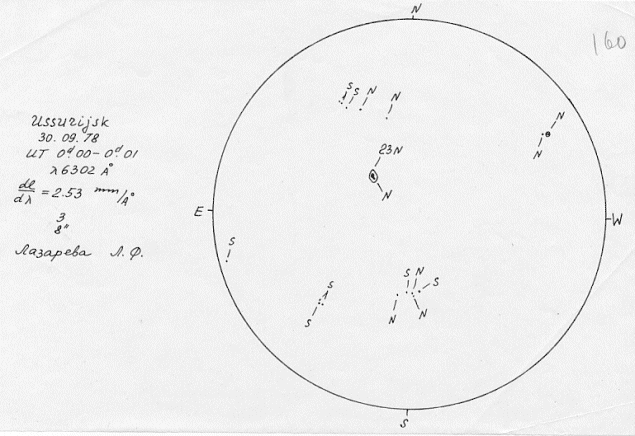 160
Ussurijsk
30.09.78
UT 0ᵈ.00-0ᵈ.01
λ6302 Å
dℓ/dλ = 2.53 mm/Å
3
8"
Лазарева Л.Ф.
N
S S N N
N
N
23N
N
E
W
S
S
S
S N S
N N
S